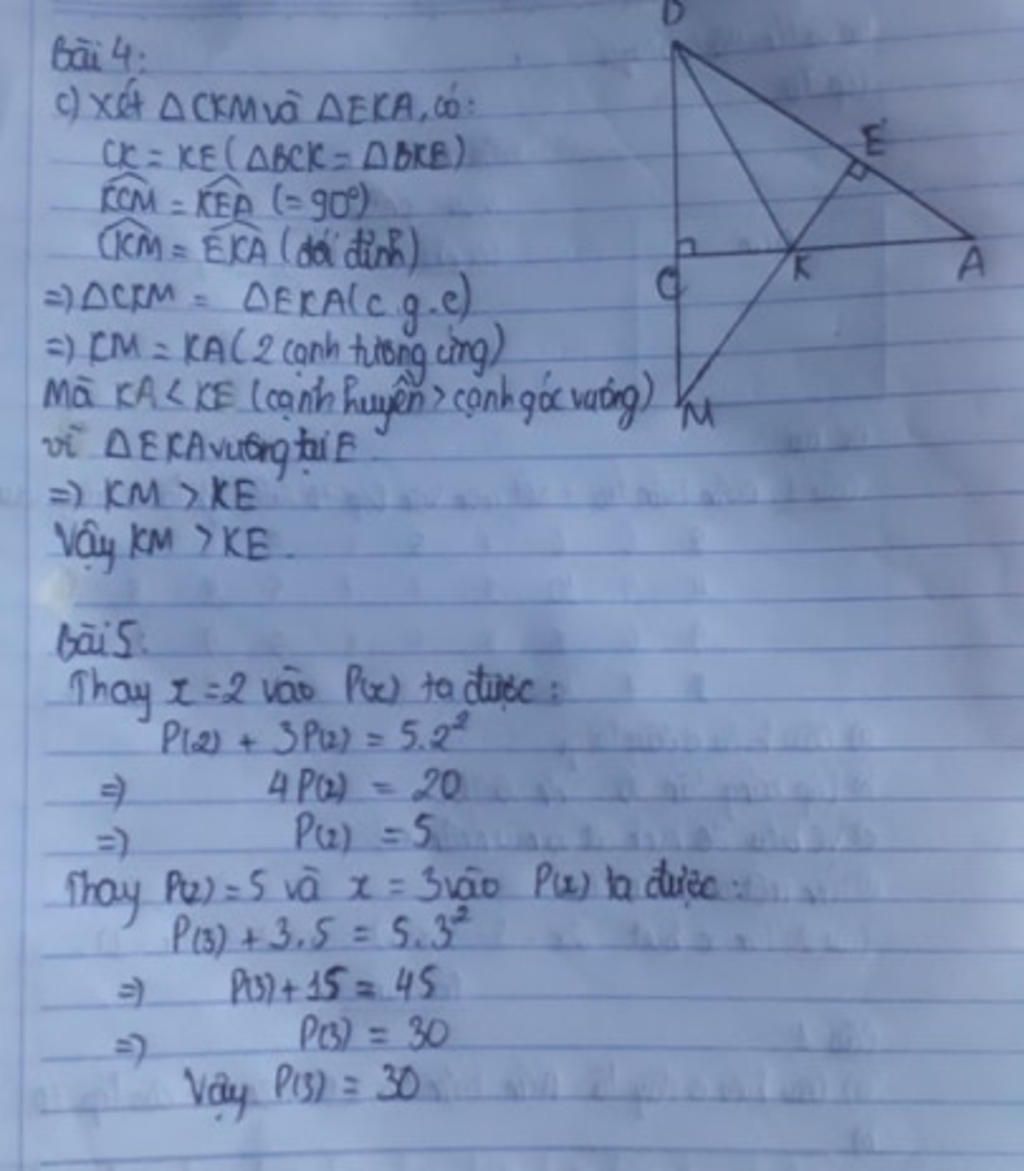 Bài 4:
c) Xét △CKM và △EKA, có:
CK = KE (△BCK = △BKE)
KCM = KEA (= 90°)
CKM = EKA (đối đỉnh)
=> △CKM = △EKA (c.g.c)
=> KM = KA (2 cạnh tương ứng)
Mà KA < KE (cạnh huyền > cạnh góc vuông)
vì △EKA vuông tại E
=> KM > KE
Vậy KM > KE.
E
K
A
C
M
Bài 5:
Thay x = 2 vào P(x) ta được:
P(2) + 3P(2) = 5.2²
=> 4P(2) = 20
=> P(2) = 5
Thay P(2) = 5 và x = 3 vào P(x) ta được:
P(3) + 3.5 = 5.3²
=> P(3) + 15 = 45
=> P(3) = 30
Vậy P(3) = 30